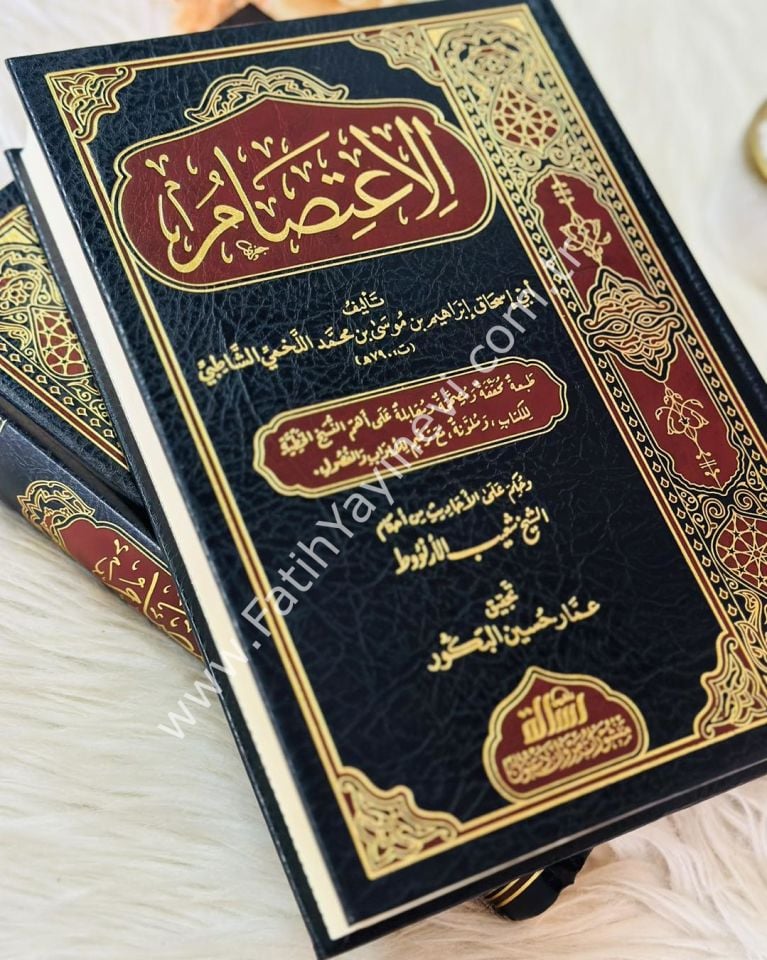 الإعتِصَامُ
تَأليفُ
أبي إسحاق إبرَاهيم بن مُوسَى بن محمَّد اللَّخميِّ الشَّاطِبيِّ
(ت ٧٩٠هـ)
طَبعَةٌ مُحَقَّقَةٌ مُقَابَلةٌ عَلى أهَمِّ النُّسَخِ الخَطِّيَّةِ
لِلكِتَابِ، وَالفُصُولِ.
وحُكِم عَلى الأحَاديثِ مِن أحكَام
الشيخ شعيب الأرنؤوط
تحقيق
عمَّار حسين البَكُّور
رسالة
www.FatihYayinevi.com.tr
الاعتصام